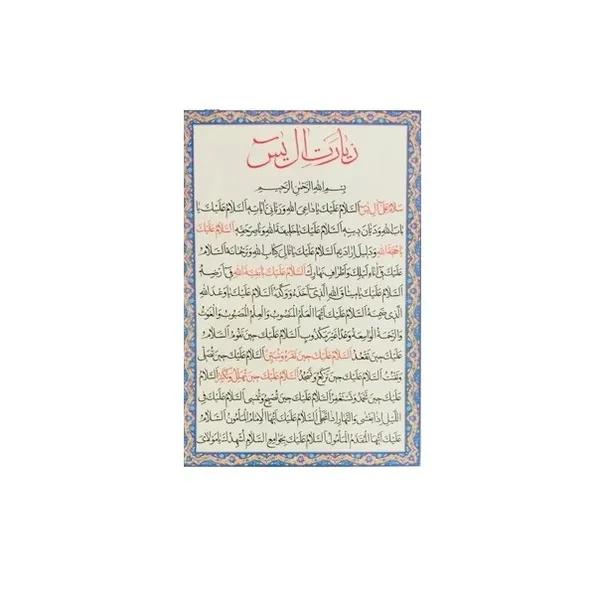 زیارت آل یس
بِسْمِ اللهِ الرَّحْمٰنِ الرَّحیمِ
سَلامٌ عَلیٰ آلِ یٰسٓ اَلسَّلامُ عَلَیْکَ یا داعِیَ اللهِ وَ رَبّانِیَّ آیاتِهِ اَلسَّلامُ عَلَیْکَ یا
بابَ اللهِ وَ دَیّانَ دینِهِ اَلسَّلامُ عَلَیْکَ یا خَلیفَةَ اللهِ وَ ناصِرَ حَقِّهِ اَلسَّلامُ عَلَیْکَ
یا حُجَّةَ اللهِ وَ دَلیلَ اِرادَتِهِ اَلسَّلامُ عَلَیْکَ یا تالِیَ کِتابِ اللهِ وَ تَرْجُمانَهُ اَلسَّلامُ
عَلَیْکَ فی آناءِ لَیْلِکَ وَ اَطْرافِ نَهارِکَ اَلسَّلامُ عَلَیْکَ یا بَقِیَّةَ اللهِ فی اَرْضِهِ
اَلسَّلامُ عَلَیْکَ یا میثاقَ اللهِ الَّذی اَخَذَهُ وَ وَکَّدَهُ اَلسَّلامُ عَلَیْکَ یا وَعْدَ اللهِ
الَّذی ضَمِنَهُ اَلسَّلامُ عَلَیْکَ اَیُّهَا الْعَلَمُ الْمَنْصُوبُ وَ الْعِلْمُ الْمَصْبُوبُ وَ الْغَوْثُ
وَ الرَّحْمَةُ الْواسِعَةُ وَعْداً غَیْرَ مَکْذُوبٍ اَلسَّلامُ عَلَیْکَ حینَ تَقُومُ اَلسَّلامُ
عَلَیْکَ حینَ تَقْعُدُ اَلسَّلامُ عَلَیْکَ حینَ تَقْرَءُ وَ تُبَیِّنُ اَلسَّلامُ عَلَیْکَ حینَ تُصَلّی
وَ تَقْنُتُ اَلسَّلامُ عَلَیْکَ حینَ تَرْکَعُ وَ تَسْجُدُ اَلسَّلامُ عَلَیْکَ حینَ تُهَلِّلُ وَ تُکَبِّرُ اَلسَّلامُ
عَلَیْکَ حینَ تَحْمَدُ وَ تَسْتَغْفِرُ اَلسَّلامُ عَلَیْکَ حینَ تُصْبِحُ وَ تُمْسی اَلسَّلامُ عَلَیْکَ فِی
اللَّیْلِ اِذا یَغْشیٰ وَ النَّهارِ اِذا تَجَلّیٰ اَلسَّلامُ عَلَیْکَ اَیُّهَا الْاِمامُ الْمَاْمُونُ اَلسَّلامُ
عَلَیْکَ اَیُّهَا الْمُقَدَّمُ الْمَاْمُولُ اَلسَّلامُ عَلَیْکَ بِجَوامِعِ السَّلامِ اُشْهِدُکَ یا مَوْلایَ